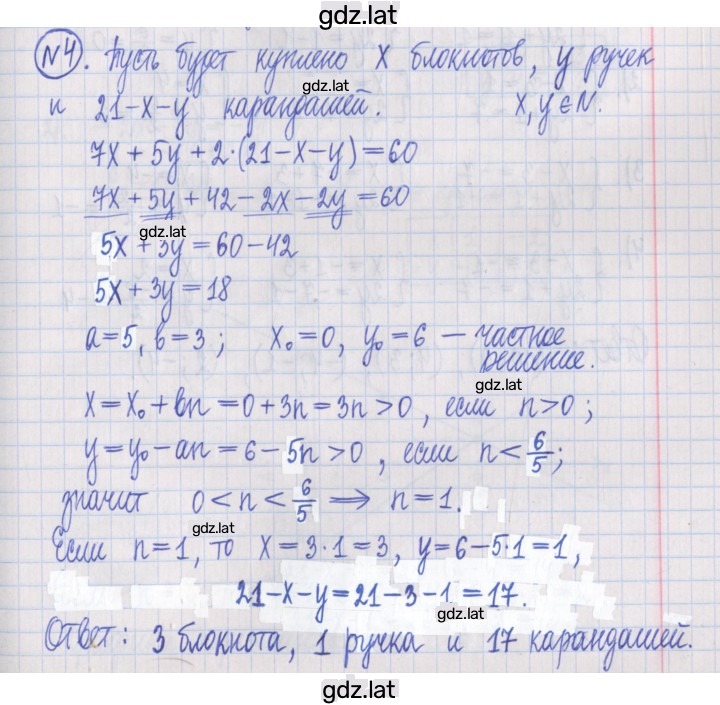 gdz.lat
№4. Пусть будет куплено x блокнотов, y ручек
gdz.lat
и 21-x-y карандашей. x, y ∈ N.
7x + 5y + 2·(21-x-y) = 60
7x + 5y + 42 - 2x - 2y = 60
gdz.lat
5x + 3y = 60 - 42
5x + 3y = 18
a = 5, b = 3; x₀ = 0, y₀ = 6 — частное
решение.
gdz.lat
x = x₀ + bn = 0 + 3n = 3n > 0, если n > 0;
y = y₀ - an = 6 - 5n > 0, если n < 6/5;
значит 0 < n < 6/5 ⟹ n = 1.
gdz.lat
Если n = 1, то x = 3·1 = 3, y = 6 - 5·1 = 1,
21 - x - y = 21 - 3 - 1 = 17.
gdz.lat
Ответ: 3 блокнота, 1 ручка и 17 карандашей.
gdz.lat